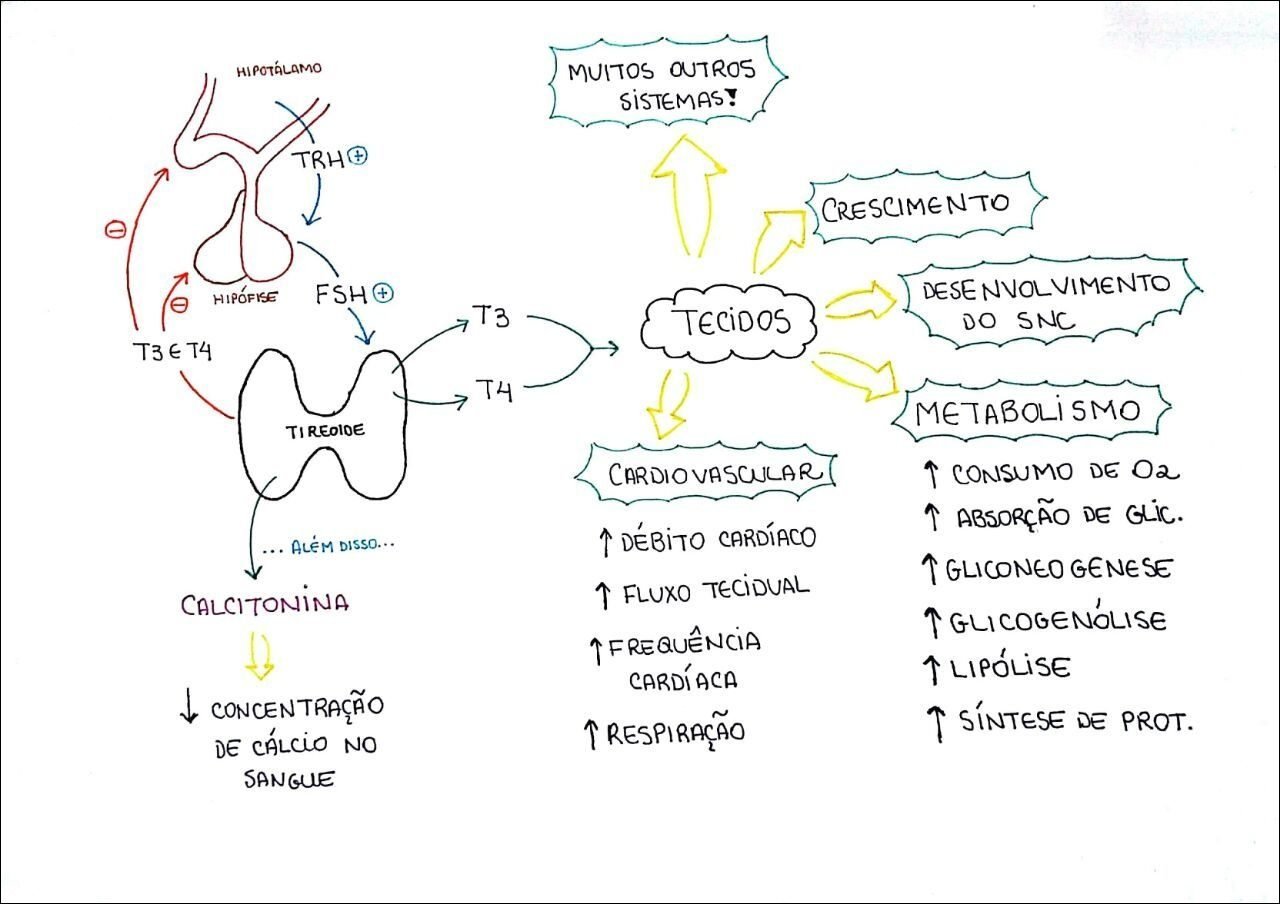 HIPOTÁLAMO
TRH +
HIPÓFISE
FSH +
-
-
T3 E T4
TIREOIDE
... ALÉM DISSO...
CALCITONINA
↓ CONCENTRAÇÃO
DE CÁLCIO NO
SANGUE
T3
T4
TECIDOS
MUITOS OUTROS
SISTEMAS!
CRESCIMENTO
DESENVOLVIMENTO
DO SNC
METABOLISMO
↑ CONSUMO DE O2
↑ ABSORÇÃO DE GLIC.
↑ GLICONEOGENESE
↑ GLICOGENÓLISE
↑ LIPÓLISE
↑ SÍNTESE DE PROT.
CARDIOVASCULAR
↑ DÉBITO CARDÍACO
↑ FLUXO TECIDUAL
↑ FREQUÊNCIA
CARDÍACA
↑ RESPIRAÇÃO